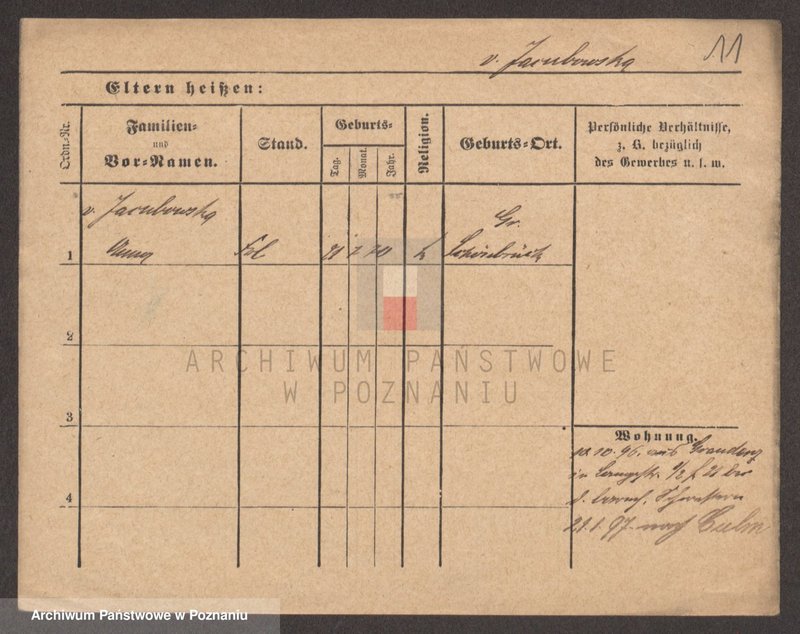 v. Jacubowska 11
Eltern heißen:
Ordn.-Nr.
Familien-
und
Vor-Namen.
Stand.
Geburts-
Tag.
Monat.
Jahr.
Religion.
Geburts-Ort.
Persönliche Verhältnisse,
z. B. bezüglich
des Gewerbes u. s. w.
v. Jacubowska
1 Anna Frl 21 7 70 k Gr.
Schönbrück
2
3
4
Wohnung.
10.10.96. aus Graudenz
in
d. barmh. Schwestern
21.1.97. nach Culm
ARCHIWUM PAŃSTWOWE
W POZNANIU
Archiwum Państwowe w Poznaniu